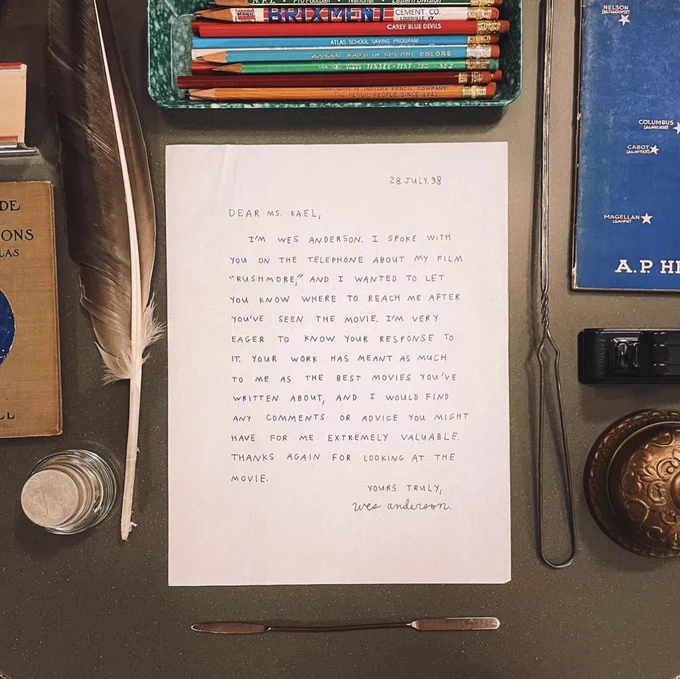 BRIXMENT CEMENT CO.
CAREY BLUE DEVILS
ATLAS SCHOOL SAVING PROGRAM
SCHOOL COLORS
INDIANA PENCIL COMPANY
THE PENCIL PEOPLE SINCE
NELSON
COLUMBUS
CABOT
MAGELLAN
A.P. HE
DE
ONS
LAS
LL
28.JULY.98
DEAR MS. KAEL,
I'M WES ANDERSON. I SPOKE WITH
YOU ON THE TELEPHONE ABOUT MY FILM
"RUSHMORE," AND I WANTED TO LET
YOU KNOW WHERE TO REACH ME AFTER
YOU'VE SEEN THE MOVIE. I'M VERY
EAGER TO KNOW YOUR RESPONSE TO
IT. YOUR WORK HAS MEANT AS MUCH
TO ME AS THE BEST MOVIES YOU'VE
WRITTEN ABOUT, AND I WOULD FIND
ANY COMMENTS OR ADVICE YOU MIGHT
HAVE FOR ME EXTREMELY VALUABLE.
THANKS AGAIN FOR LOOKING AT THE
MOVIE.
YOURS TRULY,
wes anderson.